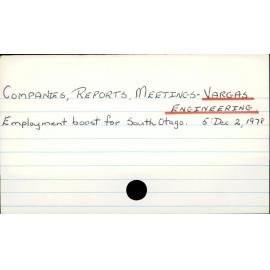 COMPANIES, REPORTS, MEETINGS - VARGAS
ENGINEERING.
Employment boost for South Otago. 5 Dec 2, 1978